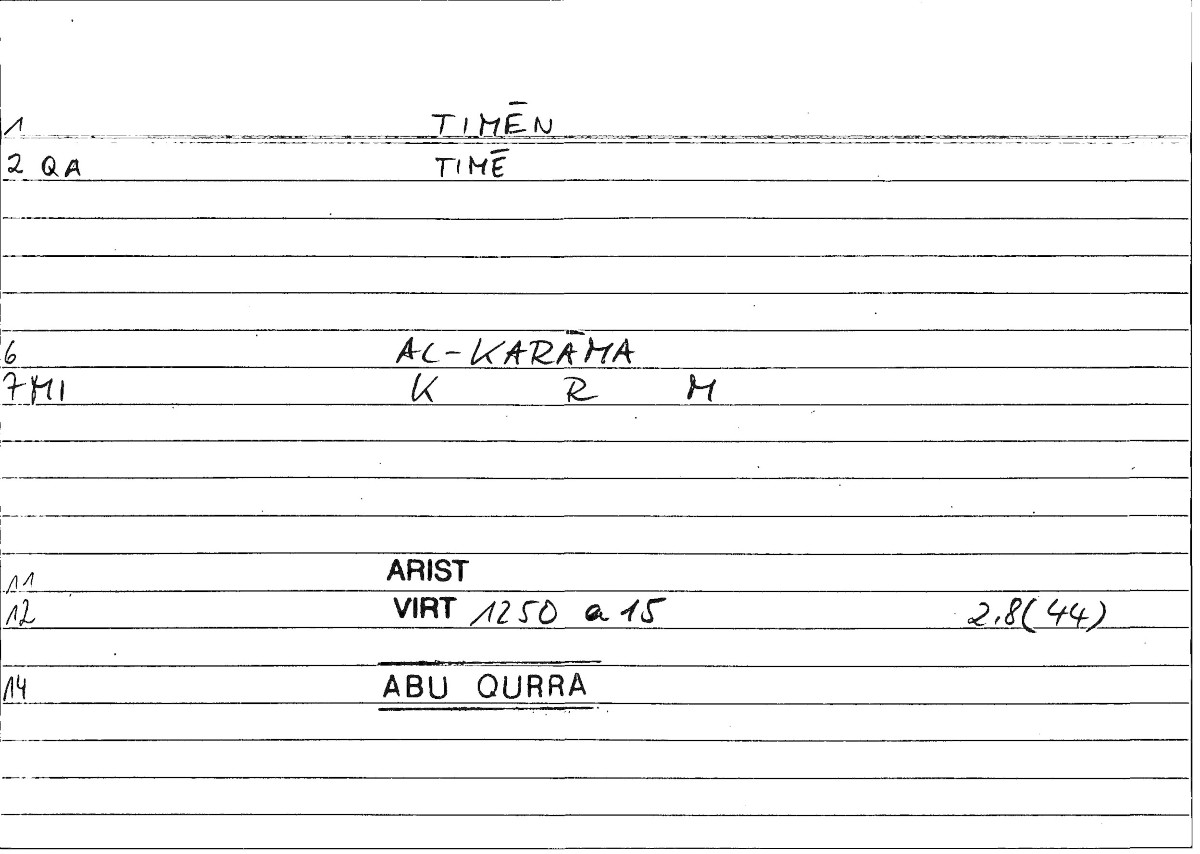 1 TIMĒN
2 QA TIMĒ
6 AL-KARĀMA
7 MI K R M
11 ARIST
12 VIRT 1250 a 15 2.8(44)
14 ABU QURRA